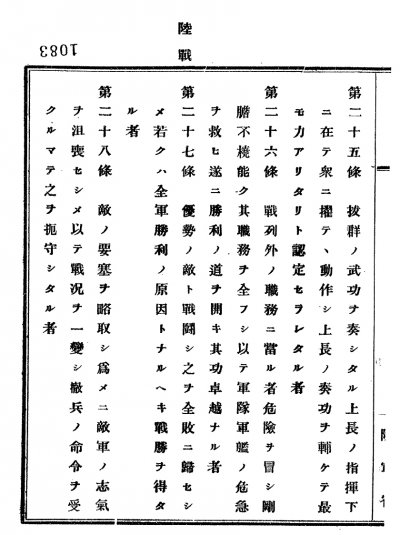 陸戰
1083
第二十五條　拔群ノ武功ヲ奏シタル上長ノ指揮下
ニ在テ衆ニ擢テヽ動作シ上長ノ奏功ヲ輔ケテ最
モ力アリタリト認定セラレタル者
第二十六條　戰列外ノ職務ニ當ル者危險ヲ冒シ剛
膽不橈能ク其職務ヲ全フシ以テ軍隊軍艦ノ危急
ヲ救ヒ遂ニ勝利ノ道ヲ開キ其功卓越ナル者
第二十七條　優勢ノ敵ト戰鬪シ之ヲ全敗ニ歸セシ
メ若クハ全軍勝利ノ原因トナルヘキ戰勝ヲ得タ
ル者
第二十八條　敵ノ要塞ヲ略取シ爲メニ敵軍ノ志氣
ヲ沮喪セシメ以テ戰況ヲ一變シ撤兵ノ命令ヲ受
クルマテ之ヲ扼守シタル者